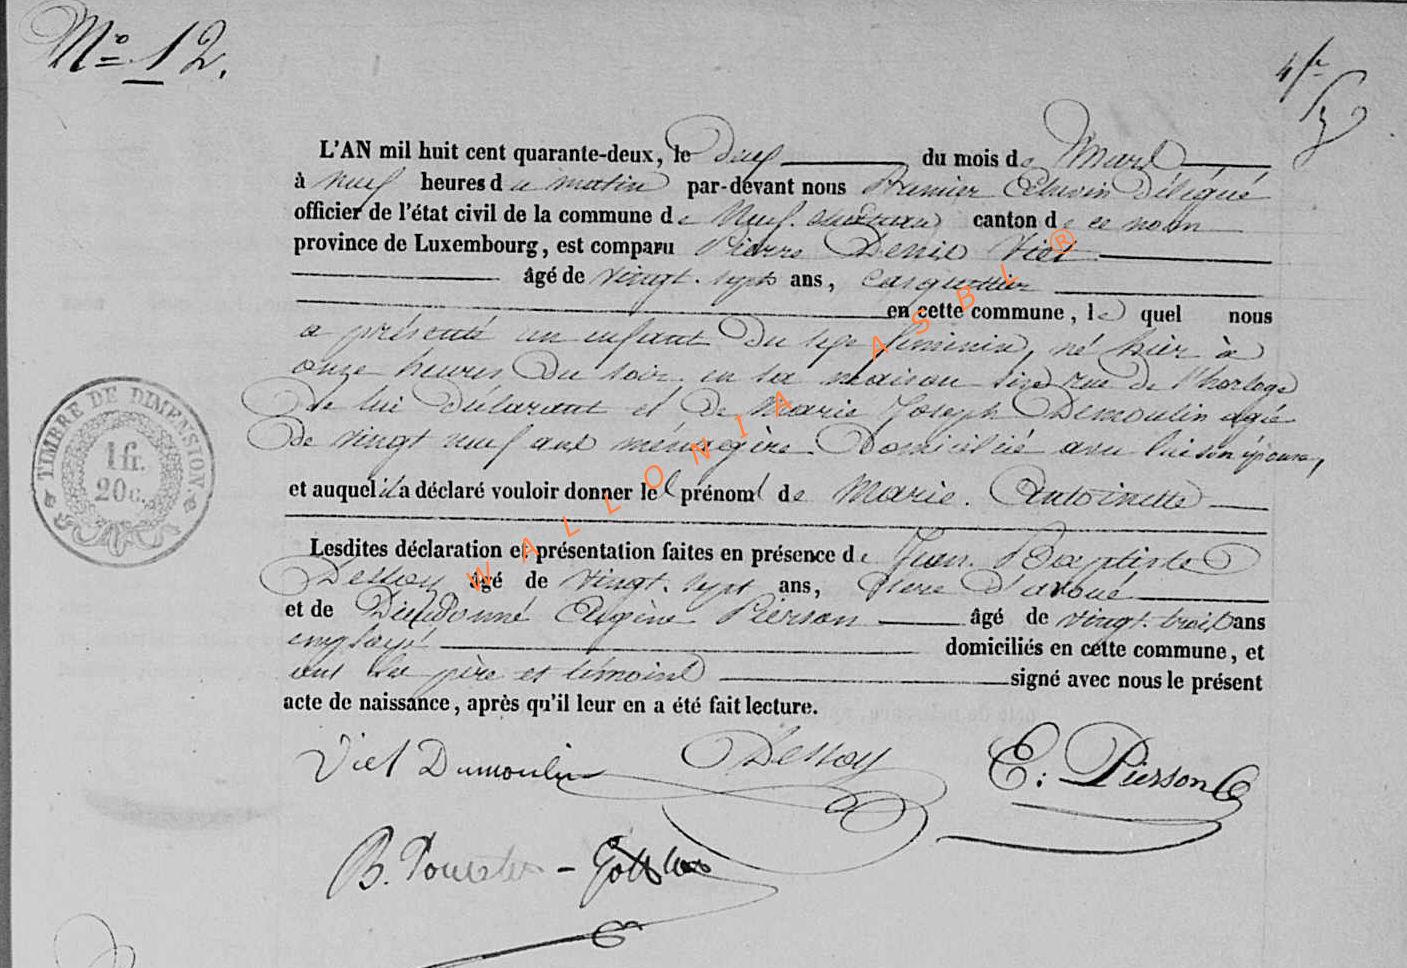 N° 12.
4 fr
L'AN mil huit cent quarante-deux, le deux du mois de Mars
à neuf heures du matin par-devant nous Premier Echevin Délégué
officier de l'état civil de la commune de Neufchateau canton de ce nom
province de Luxembourg, est comparu Pierre Denis Viet
âgé de vingt-sept ans, casquettier
en cette commune, lequel nous
a présenté un enfant du sexe féminin, né hier à
onze heures du soir en sa maison sise rue de l'horloge
de lui déclarant et de Marie Joseph Dumoulin agée
de vingt neuf ans ménagère domiciliée avec lui son épouse,
et auquel il a déclaré vouloir donner le prénom de Marie. Antoinette
Lesdites déclaration et présentation faites en présence de Jean. Baptiste
Dessoy âgé de vingt. sept ans, Clerc d'avoué
et de Dieudonné Eugène Pierson âgé de vingt. trois ans
employé domiciliés en cette commune, et
ont les père et témoins signé avec nous le présent
acte de naissance, après qu'il leur en a été fait lecture.
Viet Dumoulin Dessoy E: Pierson
B.
TIMBRE DE DIMENSION
1 fr.
20 c.
WALLONIA ASBL ®